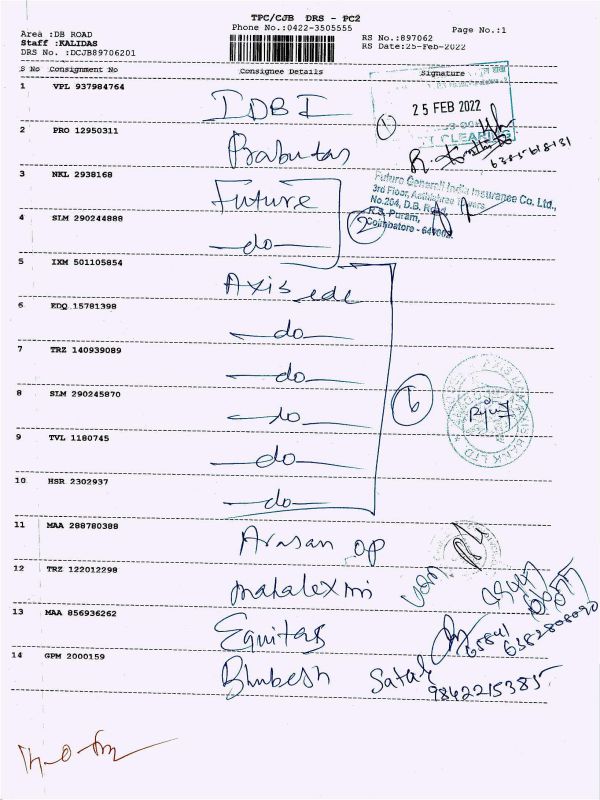 TPC/CJB DRS - PC2
Phone No.:0422-3505555
Page No.:1
Area :DB ROAD
Staff :KALIDAS
DRS No. :DCJB89706201
RS No.:897062
RS Date:25-Feb-2022
S No Consignment No Consignee Details Signature
1 VPL 937984764 IDBI
25 FEB 2022
1
2 PRO 12950311 Prabudas
3 NKL 2938168 Future
Future Generali India Insurance Co. Ltd.,
3rd Floor,
No.204, D.B. Road
R.S. Puram,
Coimbatore -
2
4 SLM 290244888 do
5 IXM 501105854 Axis ede
6 EDQ 15781398 do
7 TRZ 140939089 do
8 SLM 290245870 do
6
9 TVL 1180745 do
10 HSR 2302937 do
11 MAA 288780388 Arasan op
12 TRZ 122012298 mahalexmi
13 MAA 856936262 Equitas
6382808090
14 GPM 2000159 Bhubesh
9842215385